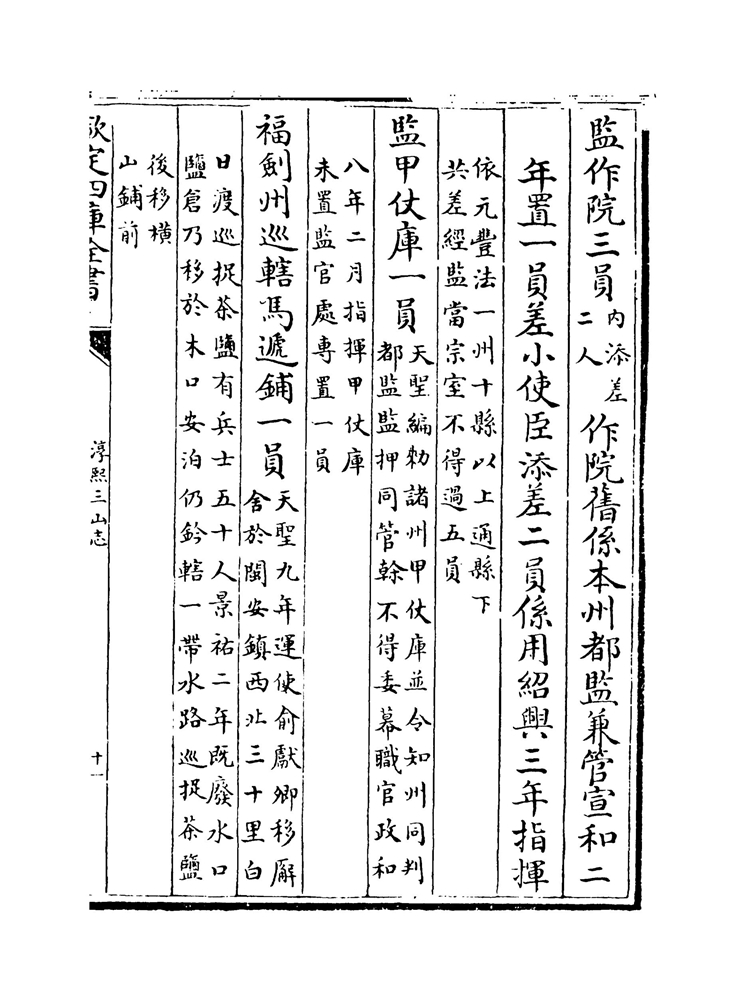 監作院三員
内添差
二人
作院舊係本州都監兼管宣和二
年置一員差小使臣添差二員係用紹興三年指揮
依元豐法一州十縣以上通縣下
共差經監當宗室不得過五員
監甲仗庫一員
天聖編勑諸州甲仗庫並令知州同判
都監監押同管幹不得委幕職官政和
八年二月指揮甲仗庫
未置監官處專置一員
福劍州巡轄馬遞鋪一員
天聖九年運使俞獻卿移廨
舍於閩安鎮西北三十里白
日渡巡捉茶鹽有兵士五十人景祐二年既廢水口
鹽倉乃移於水口安泊仍鈐轄一帶水路巡捉茶鹽
後移橫
山鋪前
欽定四庫全書
淳熙三山志
十一